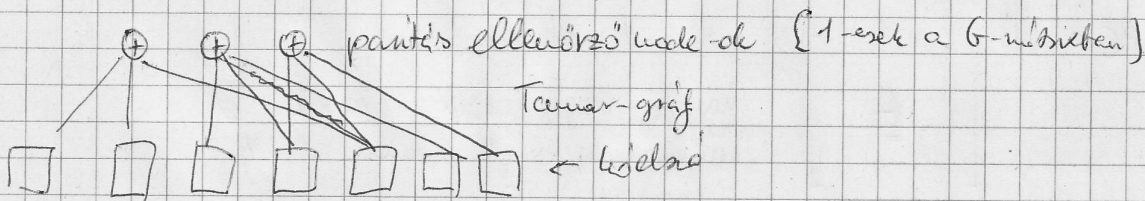 paritás ellenőrző node-ok [1-esek a G-mátrixban]
Tanner-gráf
← kódszó